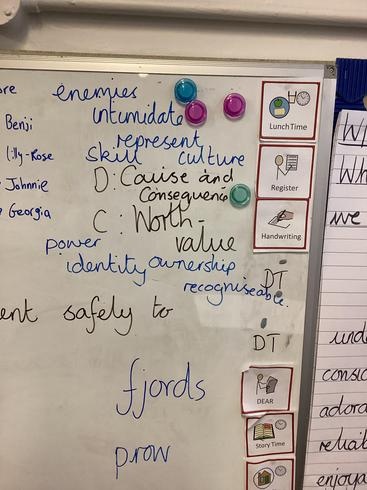 ore
enemies
Benji
intimidate
Lunch Time
represent
Lilly-Rose
skill culture
Johnnie
D: Cause and
Register
Consequence
Georgia
C: Worth-
value
Handwriting
power
identity ownership
recogniseable.
DT
ent safely to
DT
fjords
DEAR
prow
Story Time
Wh
we
und
consid
adora
reliab
enjoya